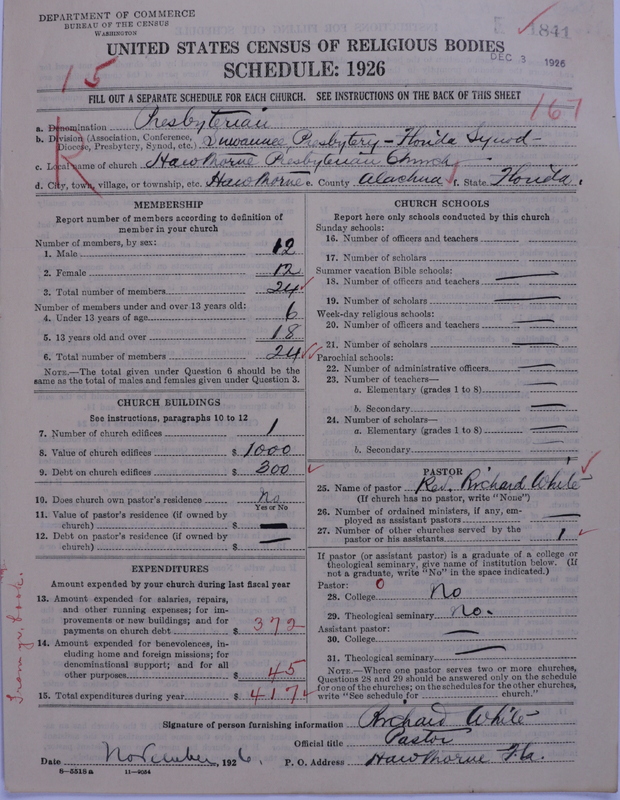 DEPARTMENT OF COMMERCE
BUREAU OF THE CENSUS
WASHINGTON
1841
UNITED STATES CENSUS OF RELIGIOUS BODIES
DEC 3 1926
SCHEDULE: 1926
15
FILL OUT A SEPARATE SCHEDULE FOR EACH CHURCH. SEE INSTRUCTIONS ON THE BACK OF THIS SHEET
167
a. Denomination Presbyterian
b. Division (Association, Conference, Diocese, Presbytery, Synod, etc.) Suwannee Presbytery - Florida Synod
c. Local name of church Hawthorne Presbyterian Church
d. City, town, village, or township, etc. Hawthorne e. County Alachua f. State Florida
MEMBERSHIP
Report number of members according to definition of
member in your church
Number of members, by sex:
1. Male 12
2. Female 12
3. Total number of members 24
Number of members under and over 13 years old:
4. Under 13 years of age 6
5. 13 years old and over 18
6. Total number of members 24
NOTE.—The total given under Question 6 should be
same as the total of males and females given under Question 3.
CHURCH BUILDINGS
See instructions, paragraphs 10 to 12
7. Number of church edifices 1
8. Value of church edifices $ 1000
9. Debt on church edifices $ 200
10. Does church own pastor's residence No
Yes or No
11. Value of pastor's residence (if owned by
church) $ —
12. Debt on pastor's residence (if owned by
church) $ —
EXPENDITURES
Amount expended by your church during last fiscal year
13. Amount expended for salaries, repairs,
and other running expenses; for im-
provements or new buildings; and for
payments on church debt $ 372
14. Amount expended for benevolences, in-
cluding home and foreign missions; for
denominational support; and for all
other purposes $ 45
15. Total expenditures during year $ 417
From yr. book.
CHURCH SCHOOLS
Report here only schools conducted by this church
Sunday schools:
16. Number of officers and teachers
17. Number of scholars
Summer vacation Bible schools:
18. Number of officers and teachers —
19. Number of scholars —
Week-day religious schools:
20. Number of officers and teachers —
21. Number of scholars —
Parochial schools:
22. Number of administrative officers —
23. Number of teachers—
a. Elementary (grades 1 to 8) —
b. Secondary —
24. Number of scholars—
a. Elementary (grades 1 to 8) —
b. Secondary —
PASTOR
25. Name of pastor Rev. Richard White
(If church has no pastor, write "None")
26. Number of ordained ministers, if any, em-
ployed as assistant pastors —
27. Number of other churches served by the
pastor or his assistants 1
If pastor (or assistant pastor) is a graduate of a college or
theological seminary, give name of institution below. (If
not a graduate, write "No" in the space indicated.)
Pastor: 0
28. College No
29. Theological seminary No.
Assistant pastor:
30. College —
31. Theological seminary —
NOTE.—Where one pastor serves two or more churches,
Questions 28 and 29 should be answered only on the schedule
for one of the churches; on the schedules for the other churches,
write "See schedule for church."
Signature of person furnishing information Richard White
Official title Pastor
Date November, 1926. P. O. Address Hawthorne Fla.
8-5518a 11-9054